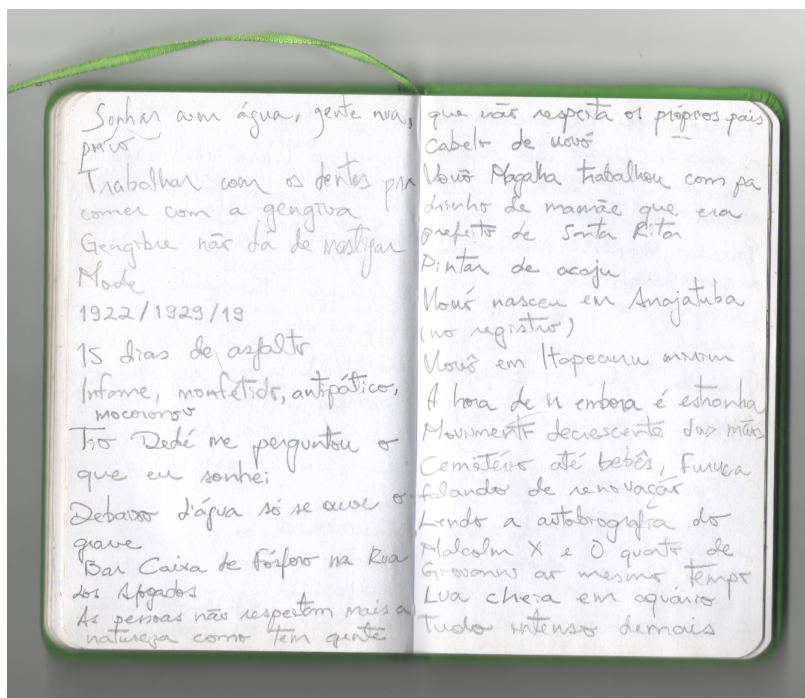 Sonhar com água, gente nua,
piolho
Trabalhar com os dentes pra
comer com a gengiva
Gengibre não dá de mastigar
Mode
1922/1929/19
15 dias de asfalto
Infame, monfétido, antipático,
mocorongo
Tio Dedé me perguntou o
que eu sonhei
Debaixo d'água só se ouve o
grave
Bar Caixa de Fósforo na Rua
dos Afogados
As pessoas não respeitam mais a
natureza como tem gente
que não respeita os próprios pais
Cabelo de vovó
Vovô Magalha trabalhou com pa
drinho de mamãe que era
prefeito de Santa Rita
Pintar de acaju
Vovó nasceu em Anajatuba
(no registro)
Vovô em Itapecuru mirim
A hora de ir embora é estranha
Movimento decrescente das mãos
Cemitério até bebês, Furuca
falando de renovação
Lendo a autobiografia do
Malcolm X e O quarto de
Giovanni ao mesmo tempo
Lua cheia em aquário
Tudo intenso demais